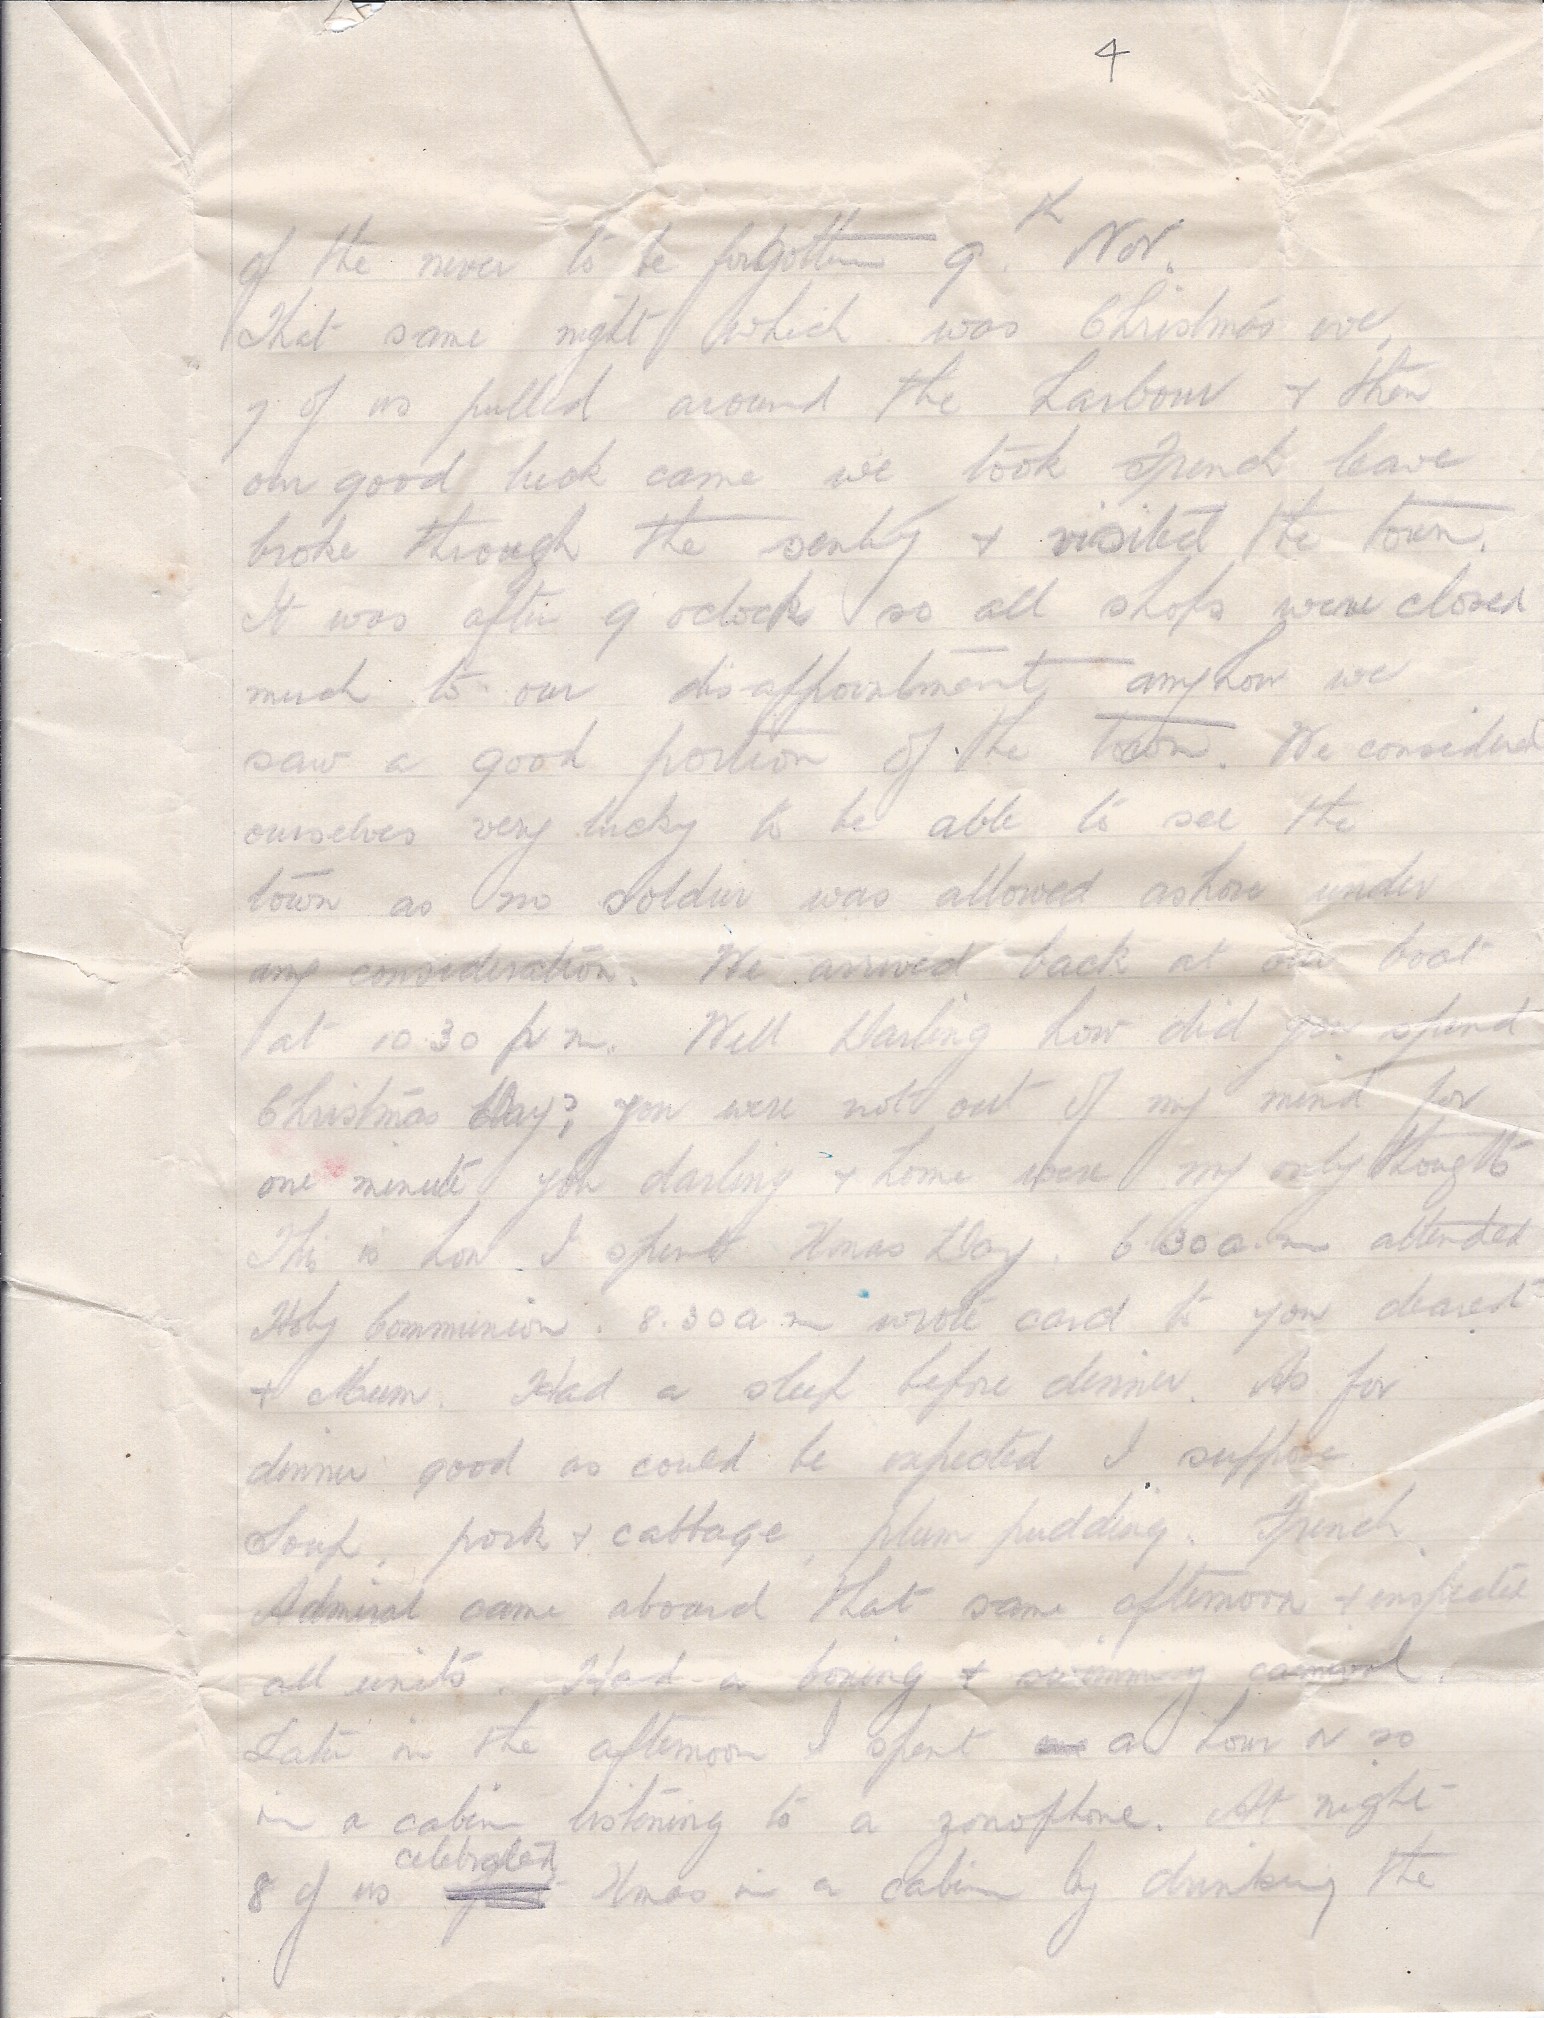 4
of the never to be forgotten 9th Nov.
That same night which was Christmas eve,
7 of us pulled around the Harbour + then
our good luck came we took French leave
broke through the sentry + visited the town.
It was after 9 oclock so all shops were closed
much to our disappointment anyhow we
saw a good portion of the town. We considered
ourselves very lucky to be able to see the
town as no soldier was allowed ashore under
any consideration. We arrived back at our boat
at 10.30 p.m. Well Darling how did you spend
Christmas Day? you were not out of my mind for
one minute you darling + home were my only thoughts
This is how I spent Xmas Day. 6 30 a.m attended
Holy Communion. 8.30 a.m wrote card to you dearest
+ Mum. Had a sleep before dinner. As for
dinner good as could be expected I suppose.
Soup, pork + cabbage, plum pudding. French
Admiral came aboard that same afternoon + inspected
all units. Had a boxing + swimming carnival.
Later in the afternoon I spent an hour or so
in a cabin listening to a zonophone. At night
8 of us celebrated Xmas in a cabin by drinking the